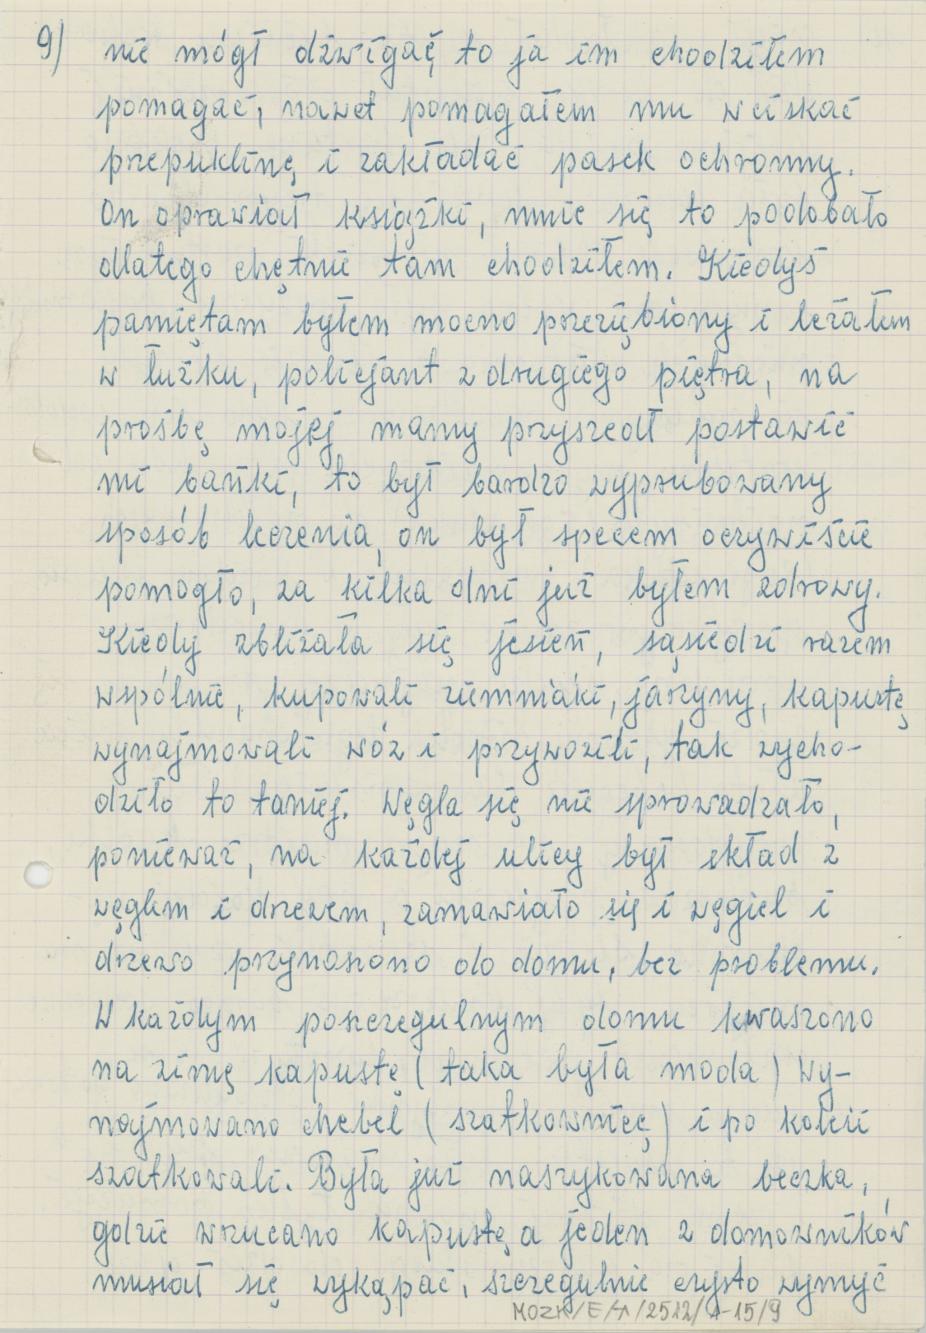 9) nie mógł dźwigać, to ja im chodziłem
pomagać, nawet pomagałem mu wciskać
przepuklinę i zakładać pasek ochronny.
On oprawiał książki, mnie się to podobało
dlatego chętnie tam chodziłem. Kiedyś
pamiętam byłem mocno przeziębiony i leżałem
w łużku, policjant z drugiego piętra, na
prośbę mojej mamy przyszedł postawić
mi bańki, to był bardzo wyprubowany
sposób leczenia, on był specem oczywiście
pomogło, za kilka dni już byłem zdrowy.
Kiedy zbliżała się jesień, sąsiedzi razem
wspólnie, kupowali ziemniaki, jarzyny, kapustę
wynajmowali wóz i przywozili, tak wycho-
dziło to taniej. Węgla się nie sprowadzało,
ponieważ, na każdej ulicy był skład z
węglem i drzewem, zamawiało się i węgiel i
drzewo przynoszono do domu, bez problemu.
W każdym poszczegulnym domu kwaszono
na zimę kapustę (taka była moda) wy-
najmowano chebel (szatkownicę) i po koleii
szatkowali. Była już naszykowana beczka,
gdzie wrzucano kapustę a jeden z domowników
musiał się wykąpać, szczegulnie czysto wymyć
MOZK/E/A/2512/1-15/9